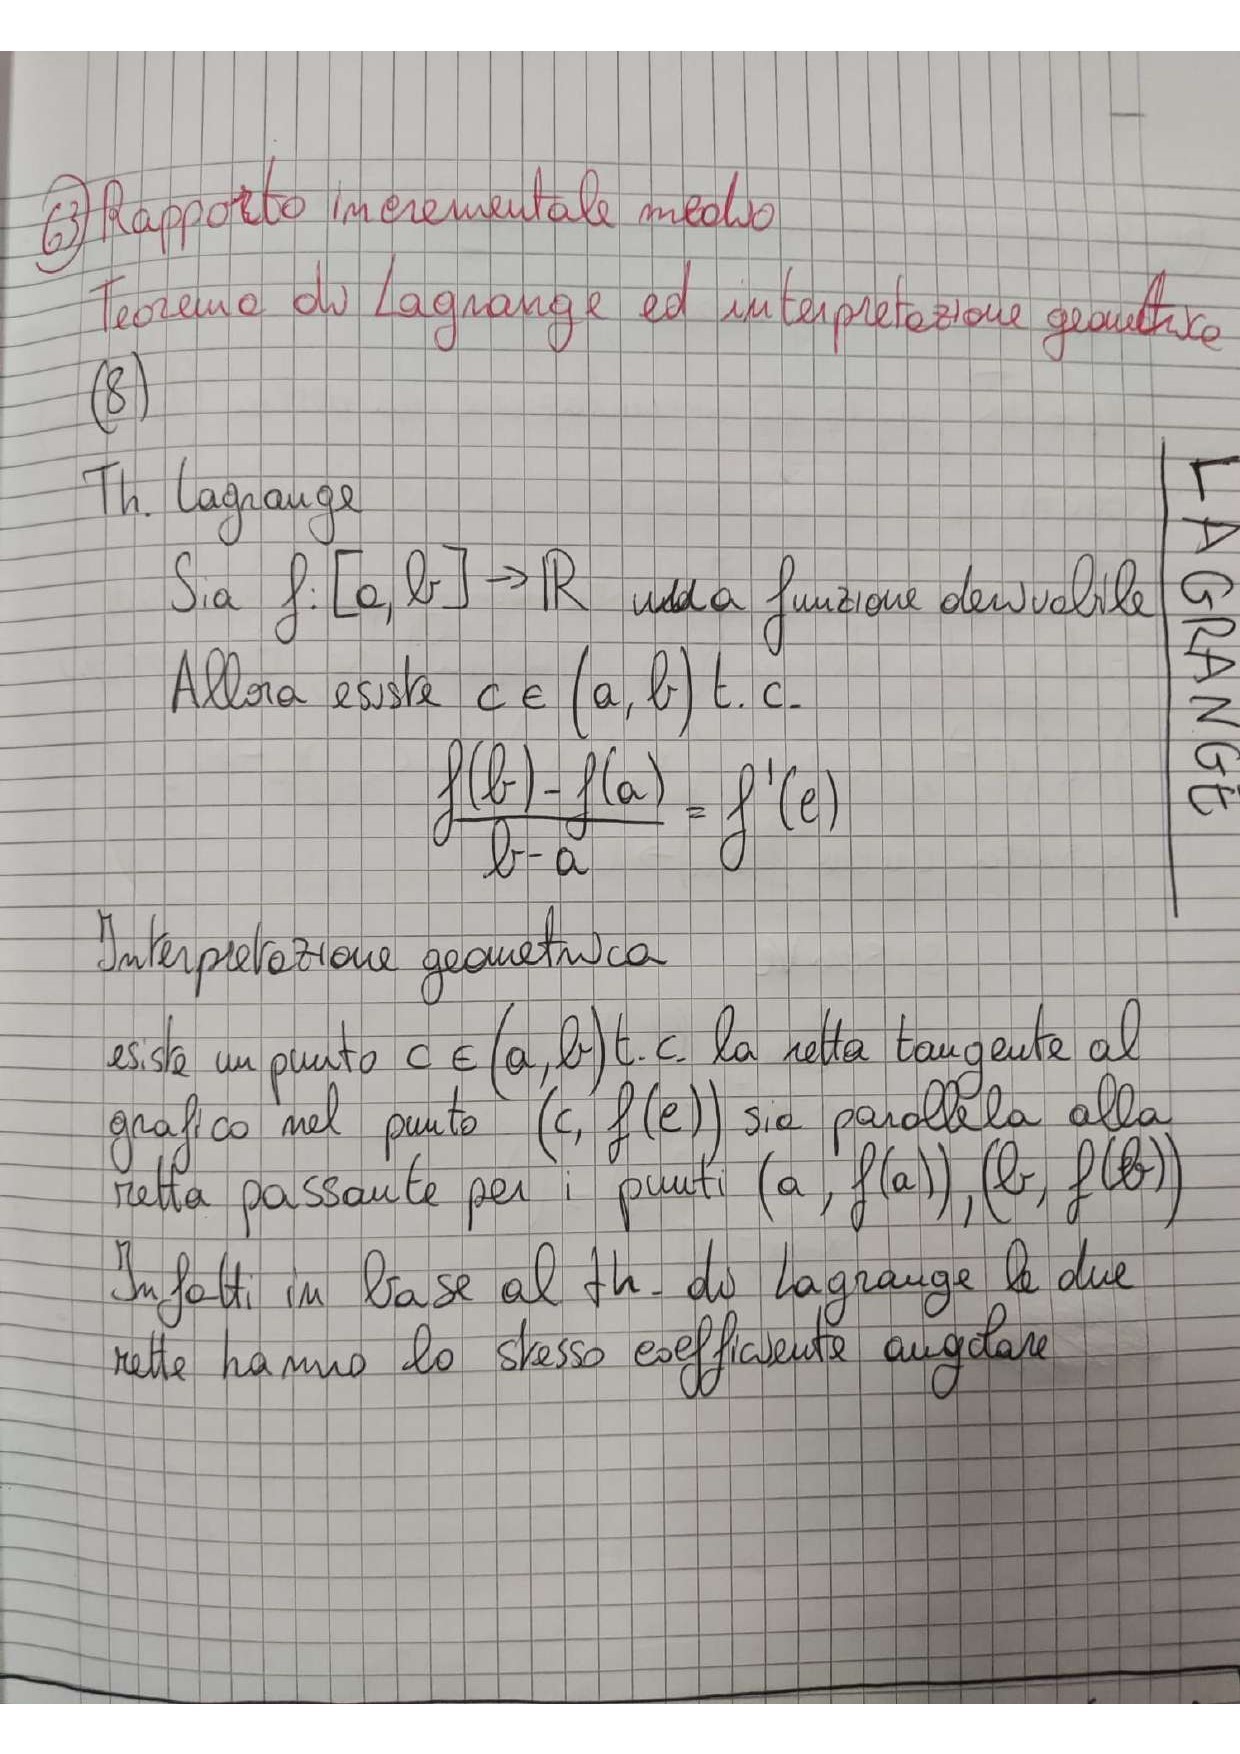 63) Rapporto incrementale medio
Teorema di Lagrange ed interpretazione geometrica
(8)
Th. Lagrange
Sia f: [a, b] → ℝ una funzione derivabile
Allora esiste c ∈ (a, b) t. c.
f(b) - f(a)
/ b - a = f'(c)
Interpretazione geometrica
esiste un punto c ∈ (a, b) t. c. la retta tangente al
grafico nel punto (c, f(c)) sia parallela alla
retta passante per i punti (a, f(a)), (b, f(b))
Infatti in base al th. di Lagrange le due
rette hanno lo stesso coefficiente angolare
LAGRANGE